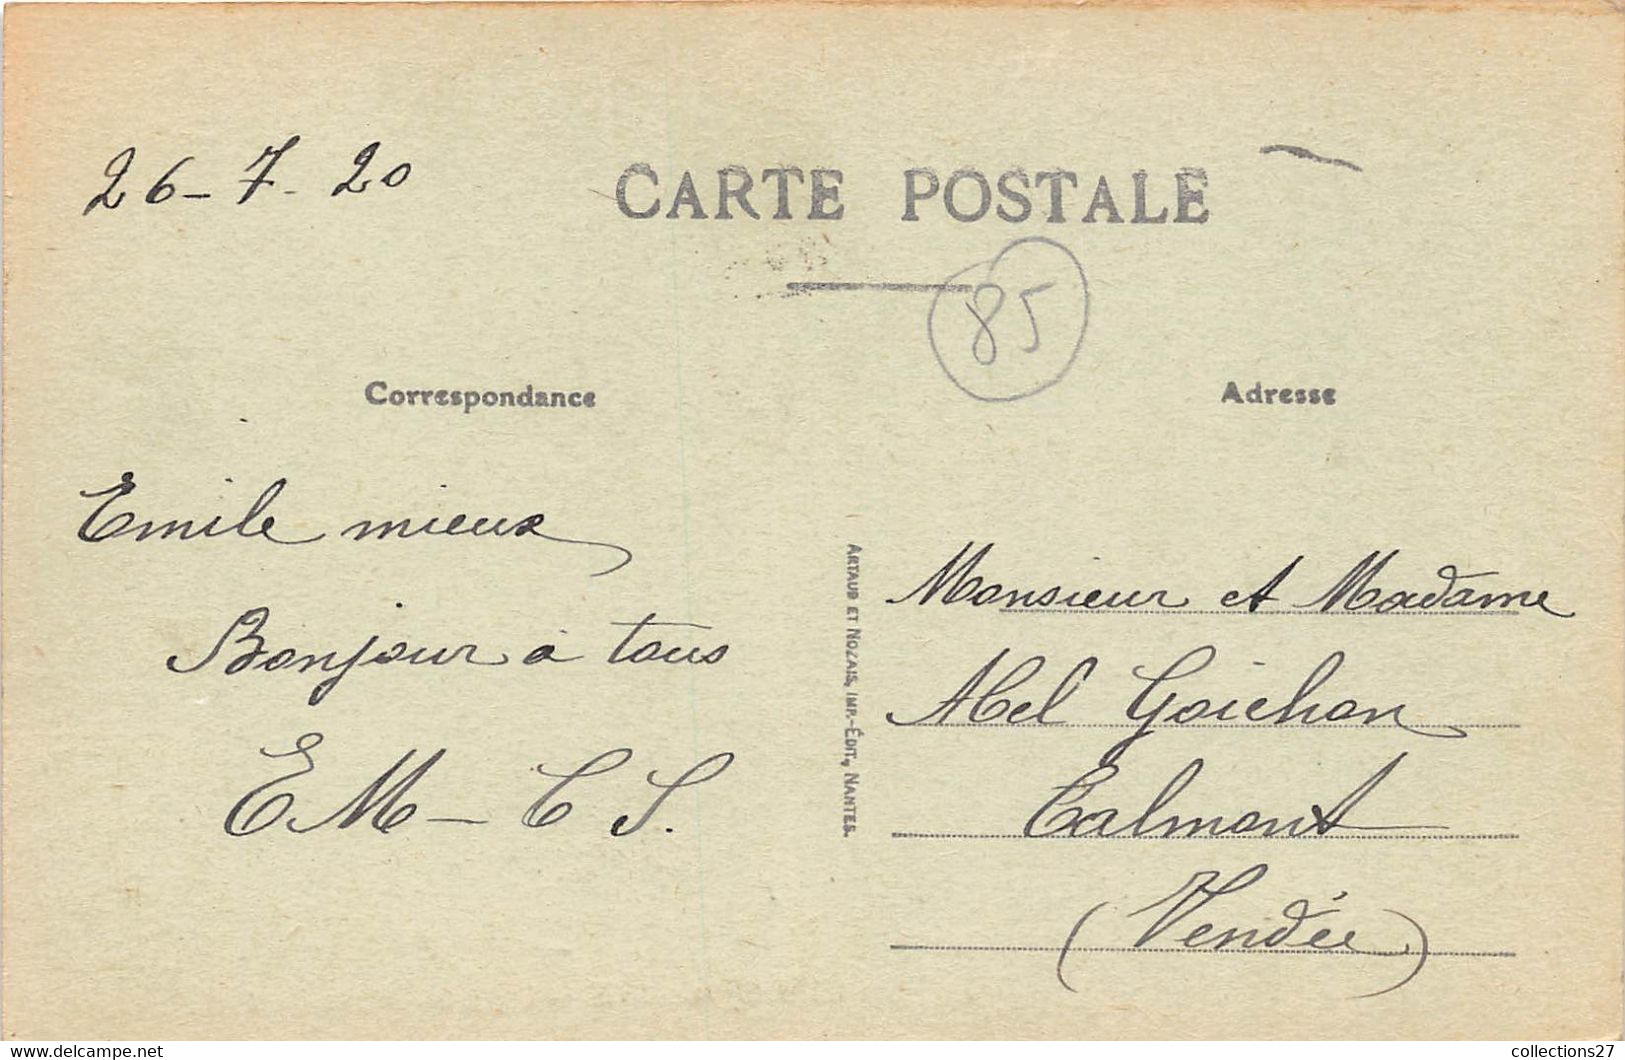 26-7-20
CARTE POSTALE
85
Correspondance
Adresse
Emile mieux
Bonjour à tous
EM-CS.
ARTAUD ET NOZAIS, IMP.-ÉDIT., NANTES.
Monsieur et Madame
Abel Goichon
Talmont
(Vendée)
collections27